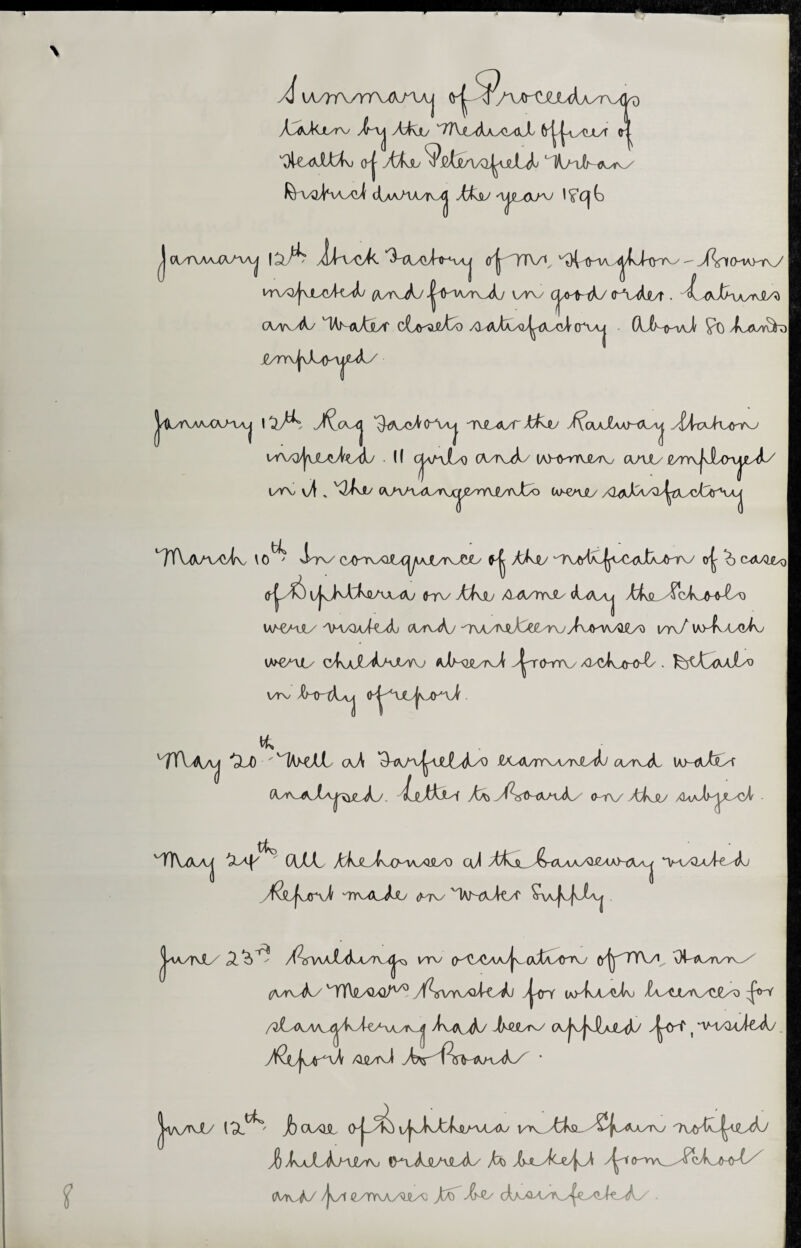 Summary of Proceedings
taken by the Medical Officer of
Health of the Petersfield Urban
District during the year 1896
January 12th Stick Factory of Mr. Houghton - Brown
inspected and found in good order. Latrines
and Water closets satisfactory. About 80 hands
employed
January 12th Rag Factory near the Railway Station
inspected. 11 girls and women are employed
in it. The arrangements were satisfactory
March 10th In consequence of the notification of 3 cases
of Diphtheria on the same day the Schools
were visited and nineteen houses in which
were children absent from school. Details
in body of report.
May 20th Well at Fairfields examined and water
analysed. Letter to Board on the subject.
May 24th All the houses at the Causeway visited
Report made on Water Supply.
June 23rd Buildings in occupation of Mr. Hann
and Messrs Binsted for which licences for
slaughtering had been applied for, visited.
Report sent to Board.
June 12th Case of Diphtheria in the Spain notified
Children ordered to be kept from School
and premises to be disinfected.
8